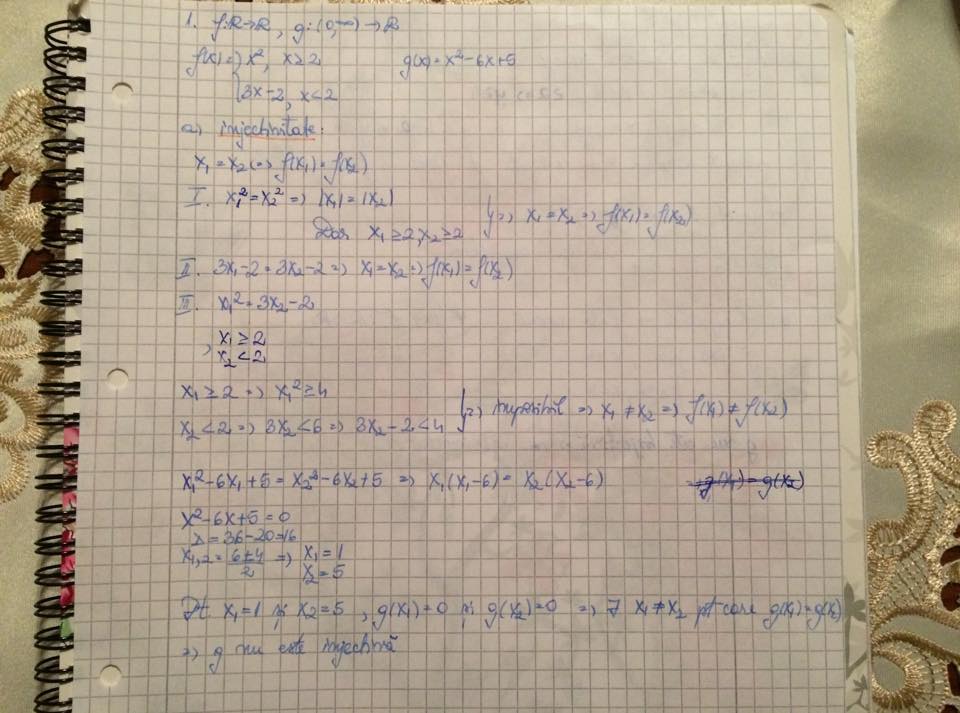 1. f:R→R, g:(0,∞)→R
f(x)={x², x≥2 g(x)=x²-6x+5
3x-2, x<2
a) injectivitate:
x₁=x₂ (=> f(x₁)=f(x₂)
I. x₁²=x₂² => |x₁|=|x₂|
Dar x₁≥2, x₂≥2 } => x₁=x₂ => f(x₁)=f(x₂)
II. 3x₁-2=3x₂-2 => x₁=x₂ => f(x₁)=f(x₂)
III. x₁²=3x₂-2
, x₁≥2
x₂<2
x₁≥2 => x₁²≥4
x₂<2 => 3x₂<6 => 3x₂-2<4 } => imposibil => x₁≠x₂ => f(x₁)≠f(x₂)
x₁²-6x₁+5=x₂²-6x₂+5 => x₁(x₁-6)=x₂(x₂-6) => g(x₁)=g(x₂)
x²-6x+5=0
Δ=36-20=16
x₁,₂=(6±4)/2 => x₁=1
x₂=5
Pt. x₁=1 și x₂=5, g(x₁)=0 și g(x₂)=0 => ∃ x₁≠x₂ pt care g(x₁)=g(x₂)
=> g nu este injectivă